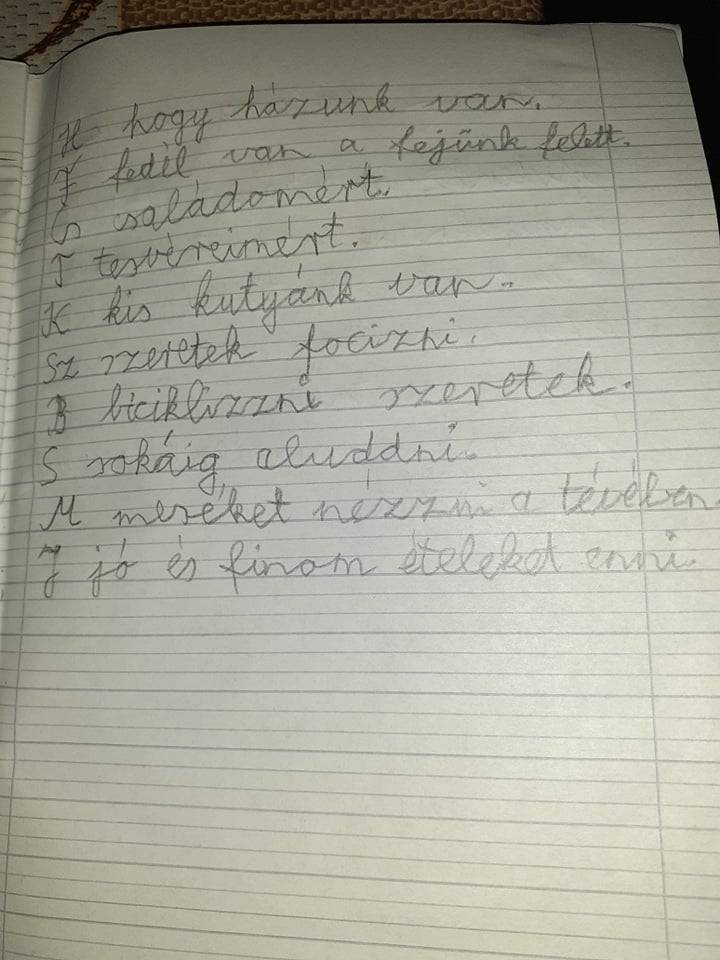 H hogy házunk van.
F fedil van a fejünk felett.
Cs családomért.
T tesvéreimért.
K kis kutyánk van.
Sz szeretek focizni.
B biciklizzni szeretek.
S sokáig aluddni.
M meséket nézzni a tévében
J jó és finom ételeket enni.